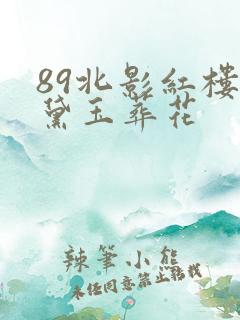 89北影红楼
黛玉葬花
辣笔小熊
未经同意禁止转载